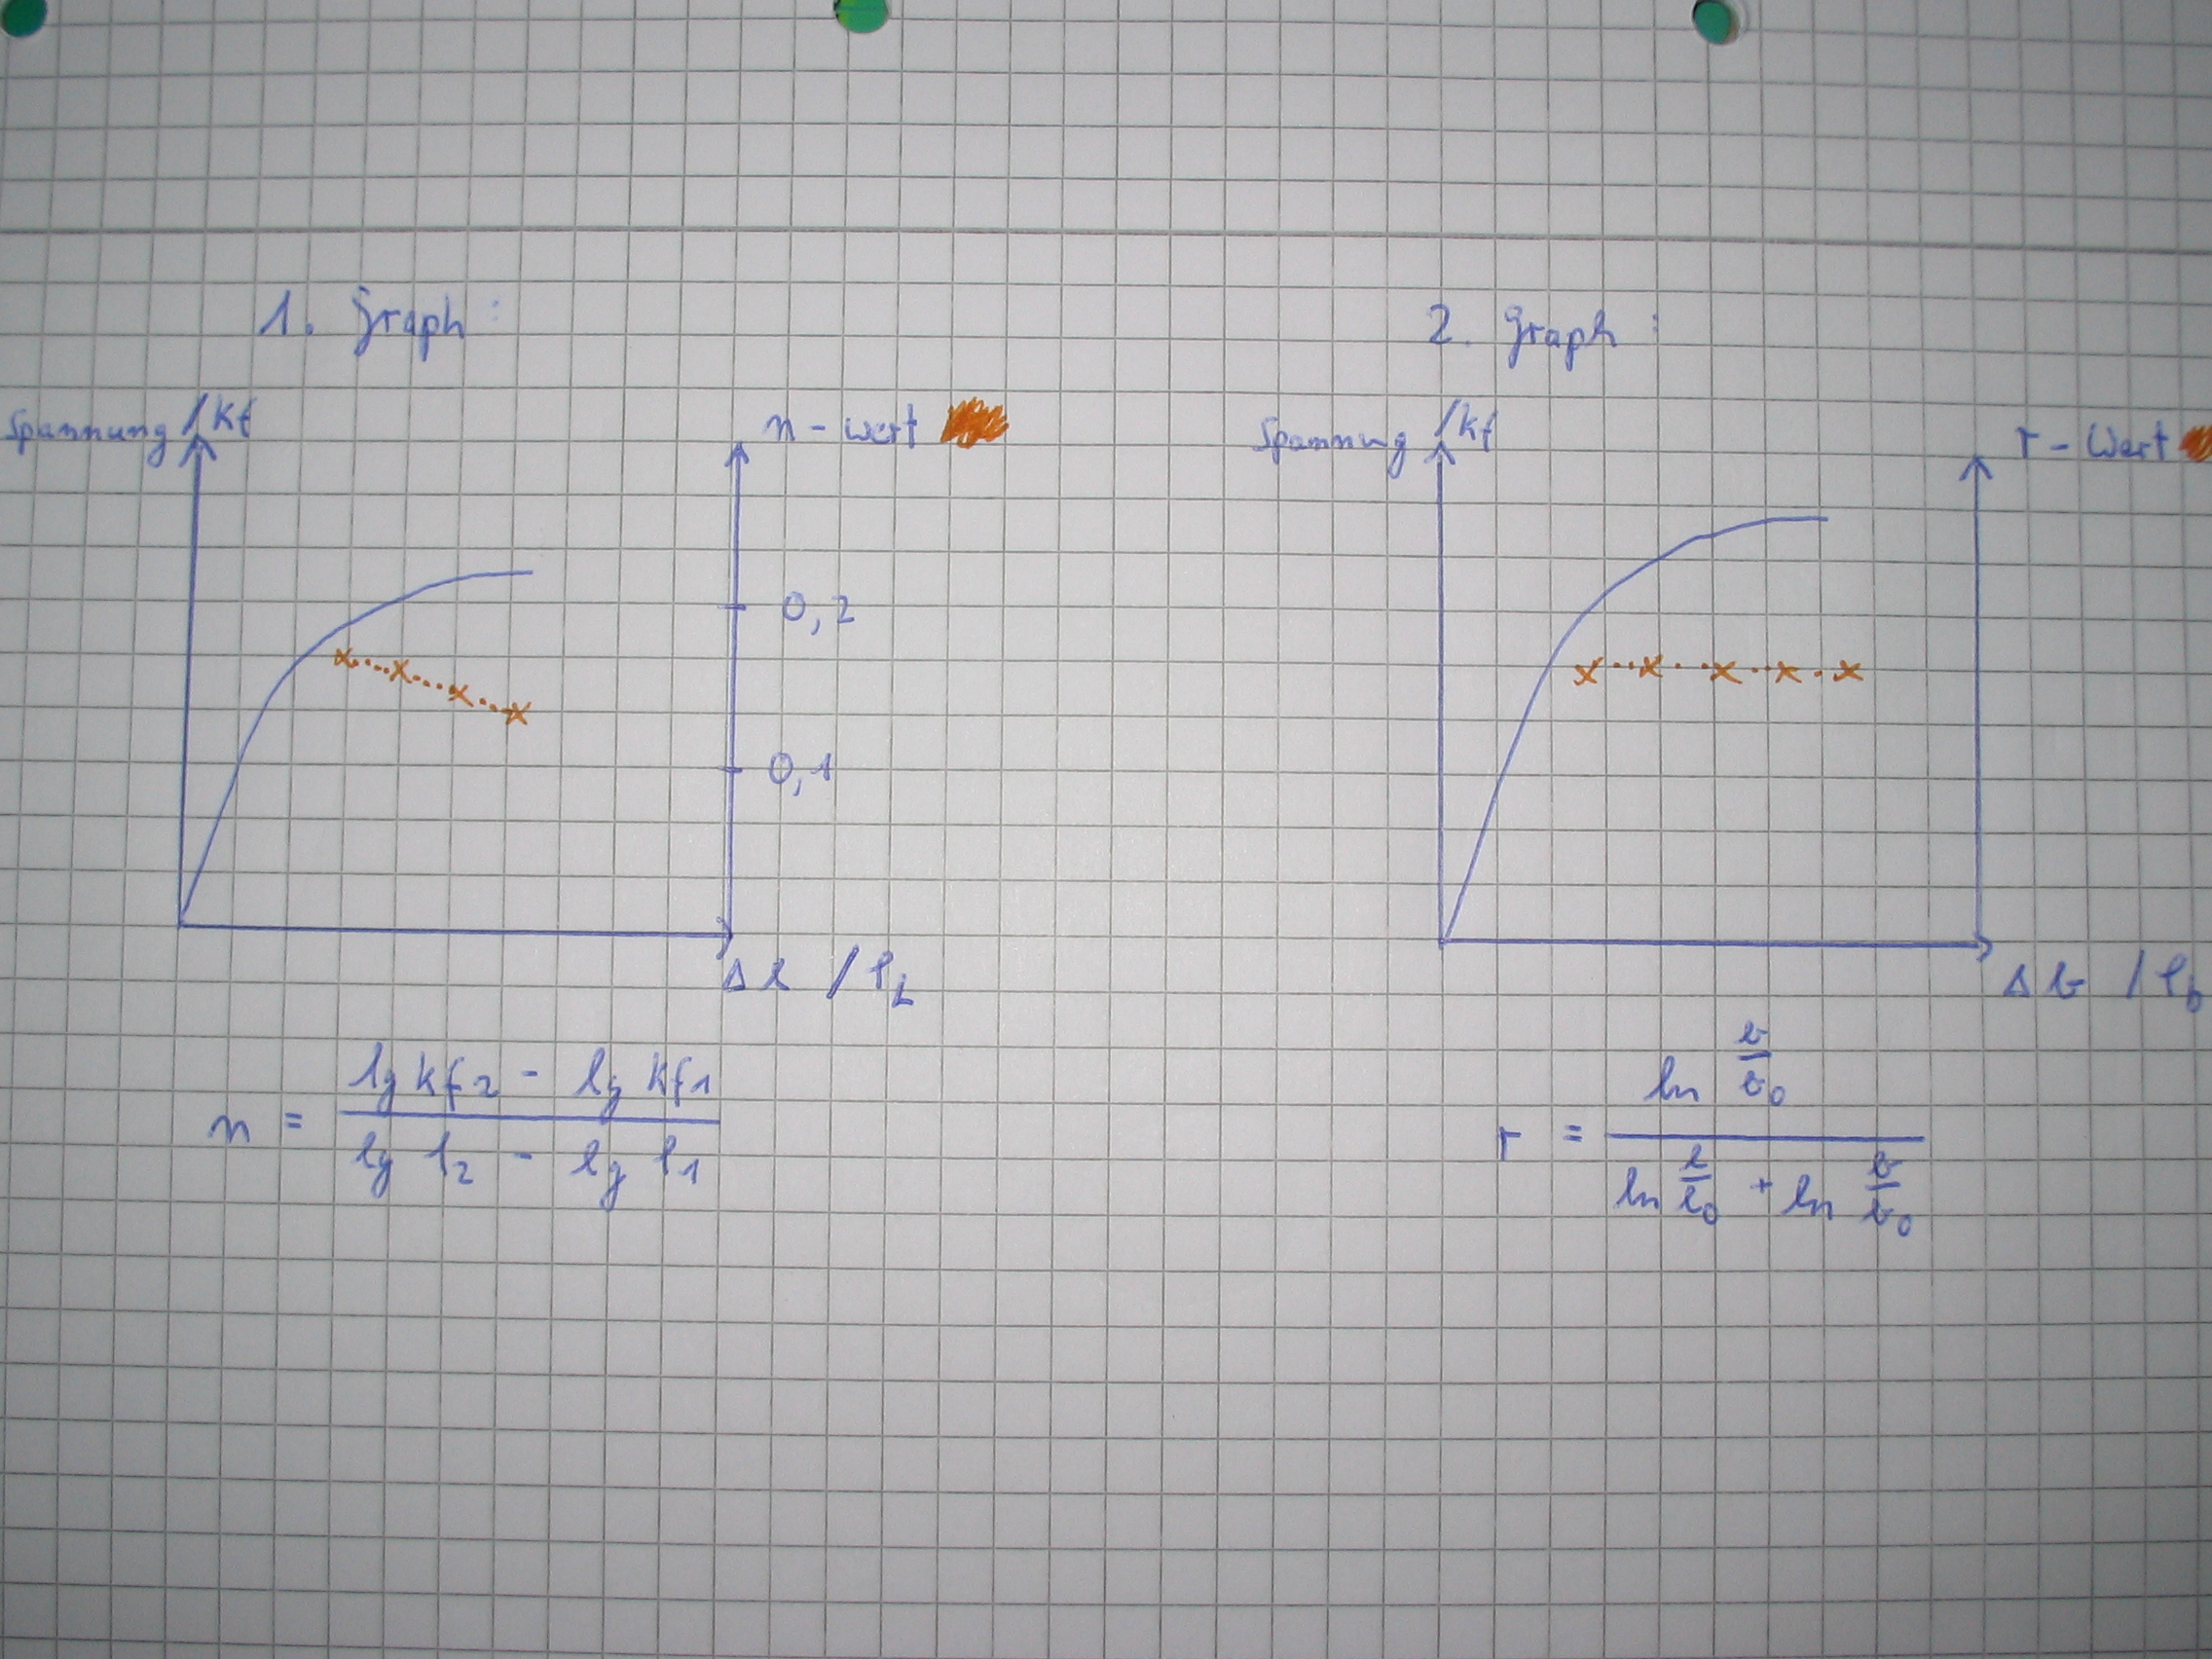 1. Graph :
Spannung /kf
n - wert
0,2
0,1
Δl / φL
n = (lg kf2 - lg kf1) / (lg φ2 - lg φ1)
2. Graph :
Spannung /kf
r - Wert
Δb / φb
r = (ln b/b0) / (ln l/l0 + ln b/b0)